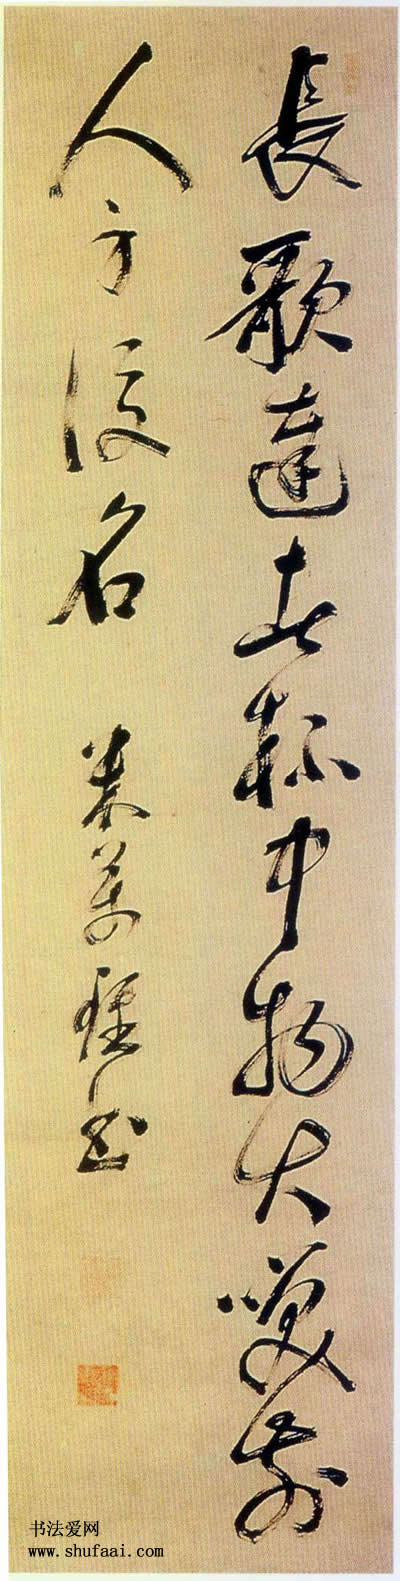 長歌達者杯中物大咲前
人身後名 米萬鍾書
书法爱网
www.shufaai.com